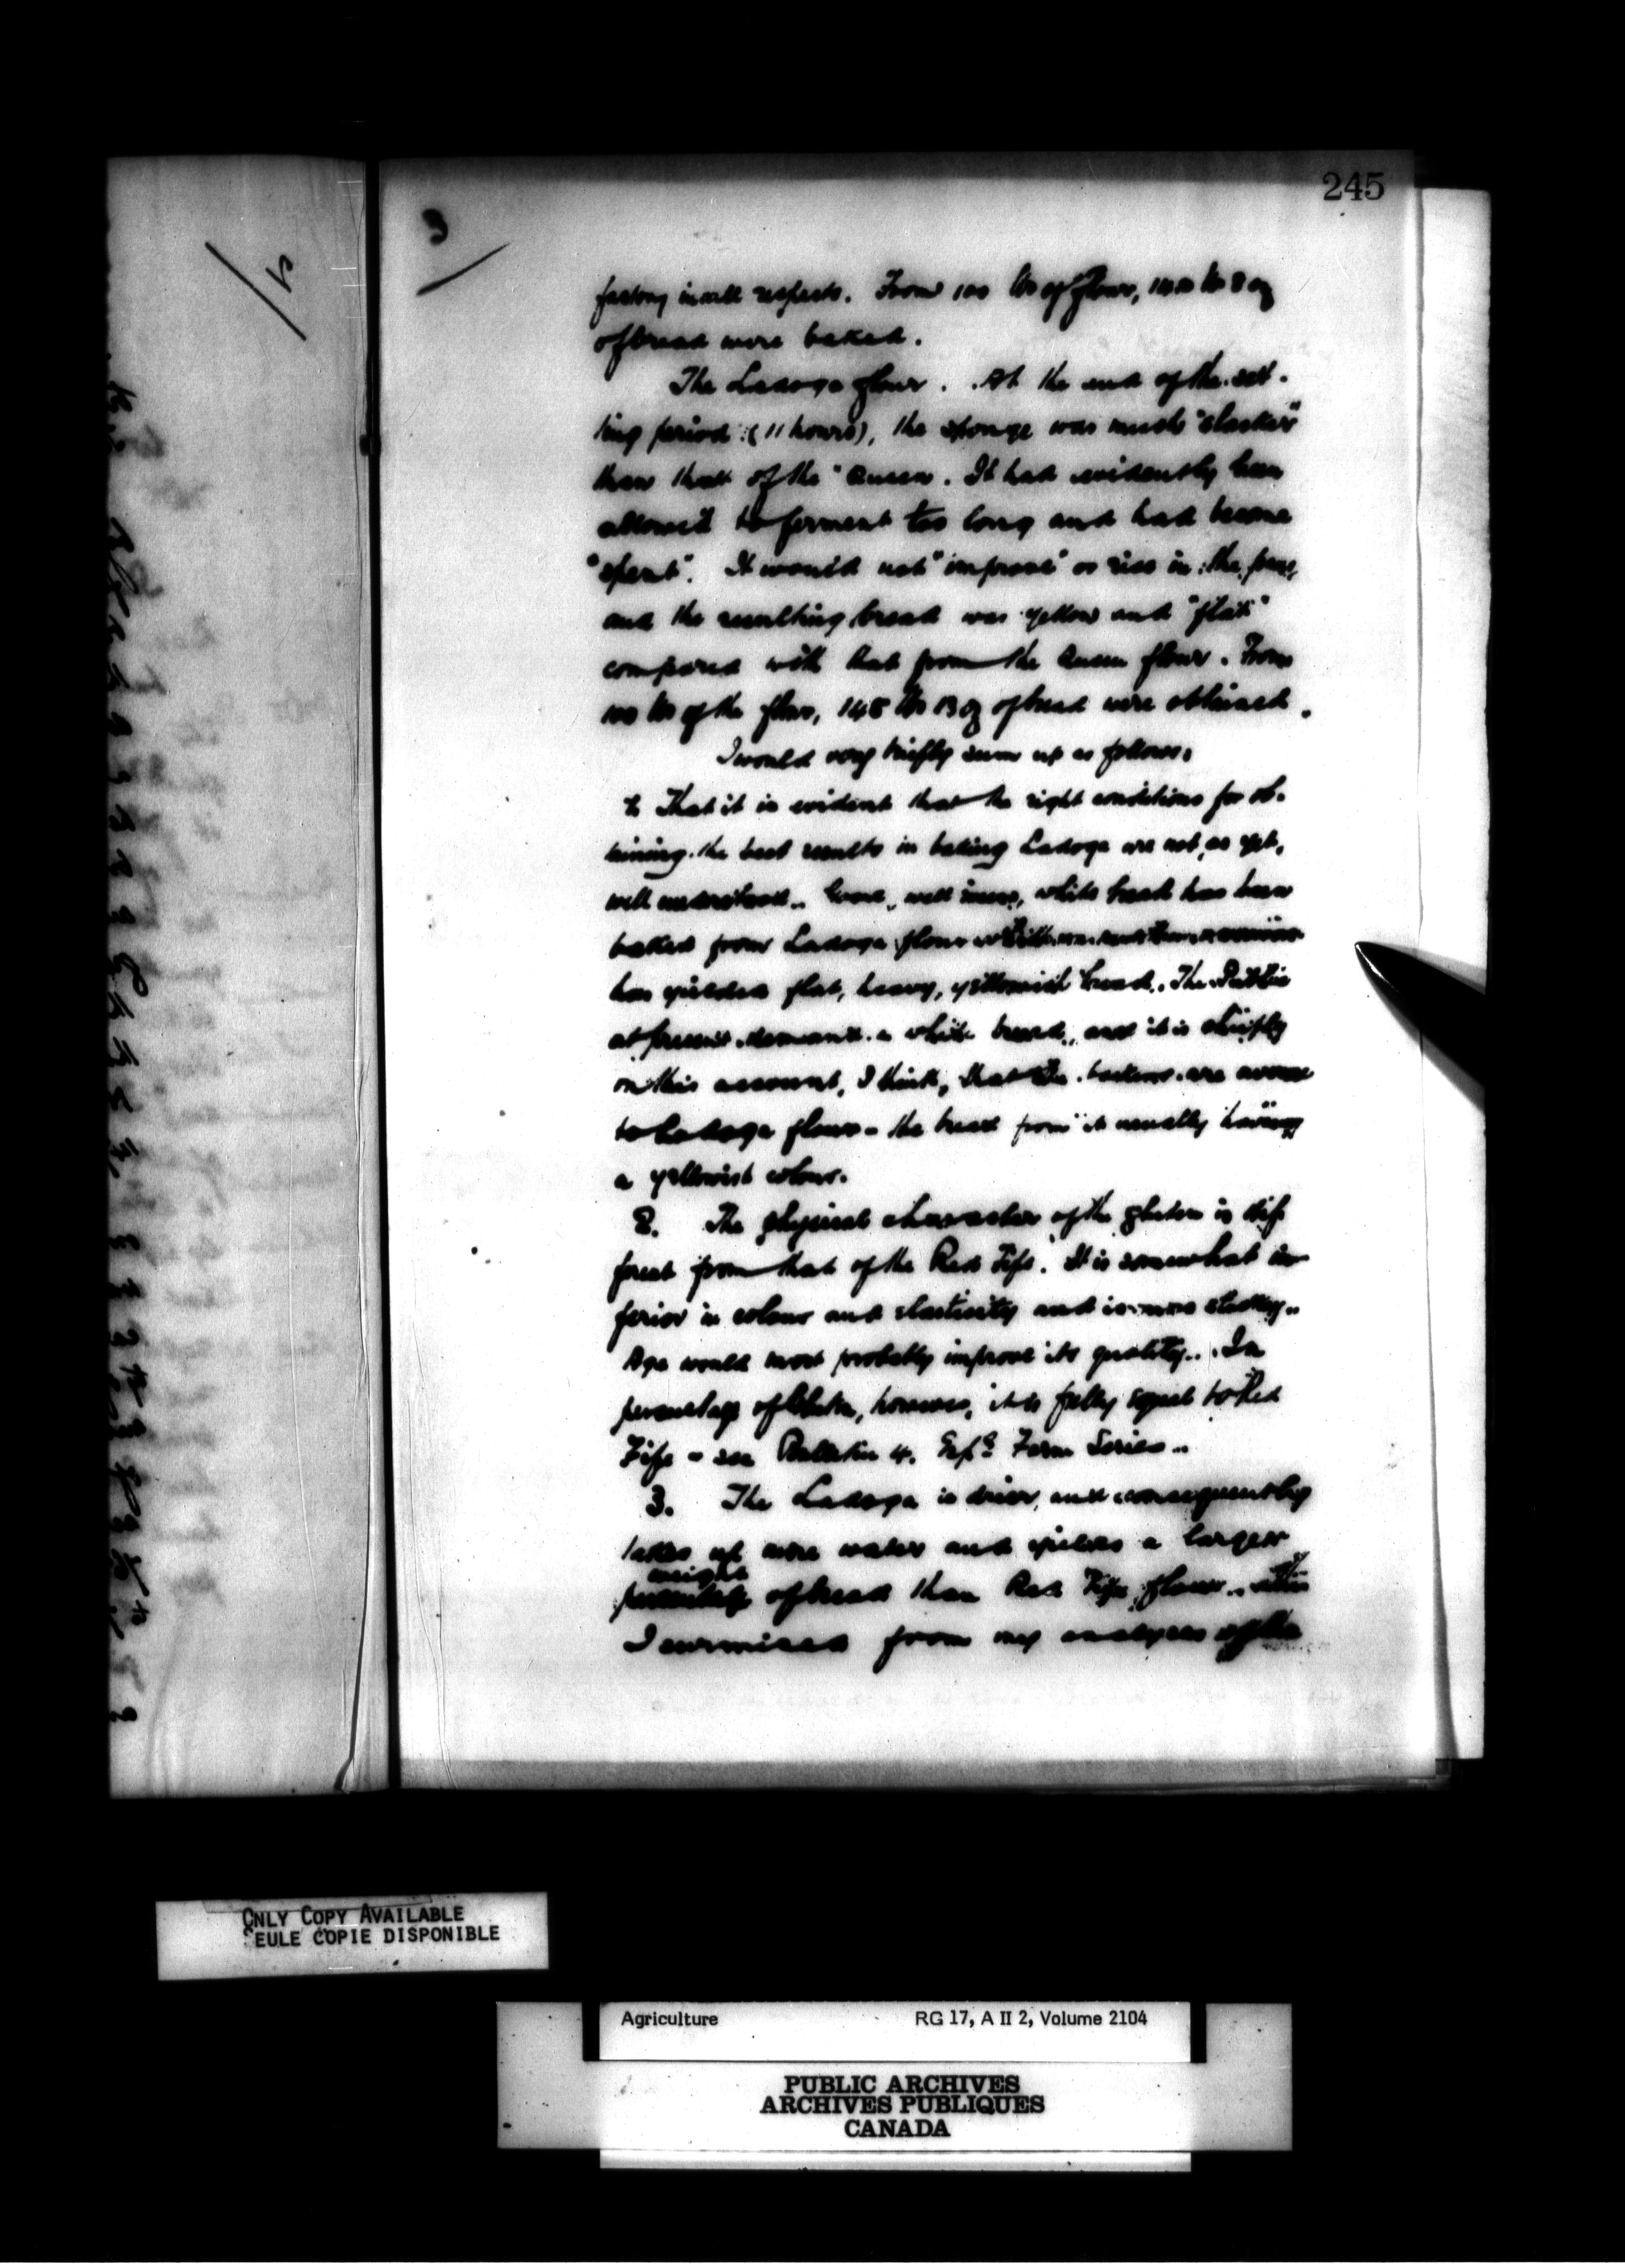 245
3
factory in all respects. From 100 lbs of flour, lbs 8 oz
of bread were baked.
The Ladoga flour. At the end of the set-
ting period (11 hours), the sponge was much "slacker"
than that of the "Queen. It had evidently been
allowed to ferment too long and had become
"spent". It would not "improve" or rise in the pans,
and the resulting bread was yellow and "flat"
compared with that from the Queen flour. From
100 lbs of the flour, 145 lbs 13 oz of bread were obtained.
I would very briefly sum up as follows:
1. That it is evident that the right conditions for ob-
taining the best results in baking Ladoga are not, as yet,
well understood. Good, well risen, white bread has been
baked from Ladoga flour
has yielded flat, heavy, yellowish bread. The Public
at present demands a white bread, and it is chiefly
on this account, I think, that the bakers are averse
to Ladoga flour - the bread from it usually having
a yellowish colour.
2. The physical character of the gluten is dif
ferent from that of the Red Fife. It is somewhat in
ferior in colour and elasticity and is more sticky.
Age would most probably improve its quality. In
percentage of Gluten, however, it is fully equal to Red
Fife - see Bulletin 4. Expl Farm Series.
3. The Ladoga is drier, and consequently
takes up more water and yields a larger
weight
percentage of bread than Red Fife flour. This
I surmised from my analyses of the
ONLY COPY AVAILABLE
SEULE COPIE DISPONIBLE
Agriculture RG 17, A II 2, Volume 2104
PUBLIC ARCHIVES
ARCHIVES PUBLIQUES
CANADA